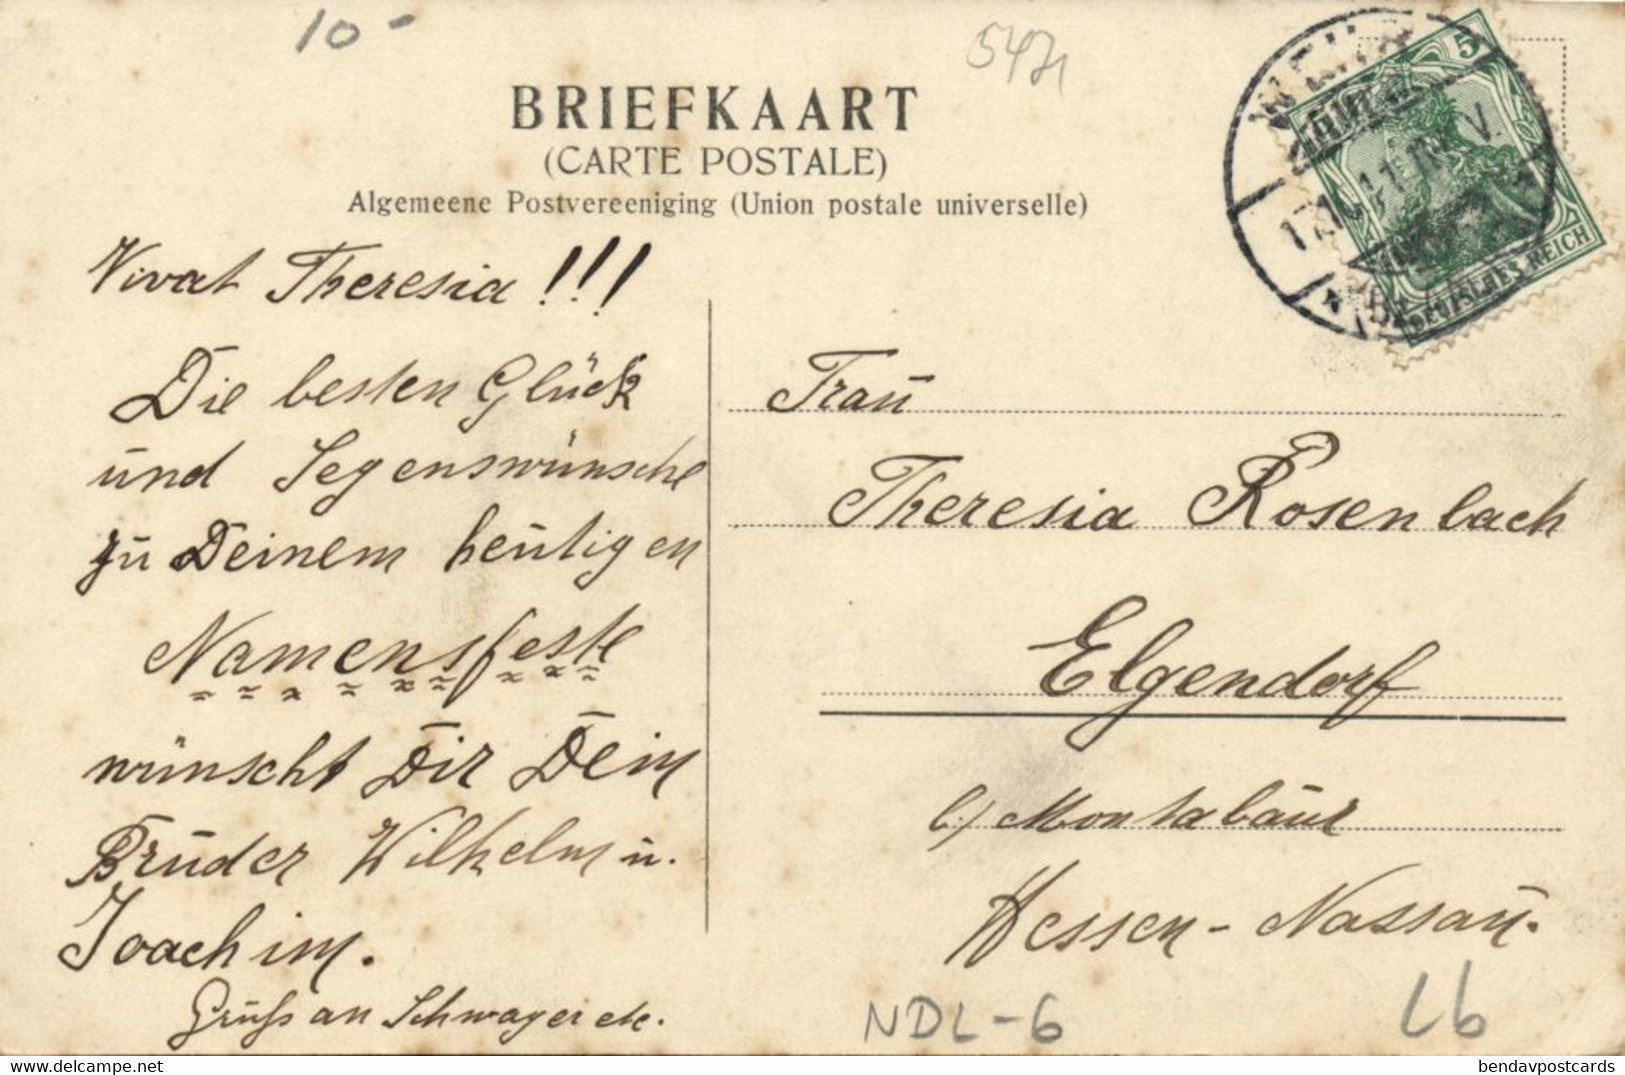 10-
5471
BRIEFKAART
(CARTE POSTALE)
Algemeene Postvereeniging (Union postale universelle)
5
DEUTSCHES REICH
Vivat Theresia!!!
Die besten Glück
und Segenswünsche
zu Deinem heutigen
Namensfeste
wünscht Dir Dein
Bruder Wilhelm u.
Joachim.
Gruß an Schwager etc.
Frau
Theresia Rosenbach
Elgendorf
b/ Montabaur
Hessen-Nassau.
NDL-6
Lb
bendavpostcards